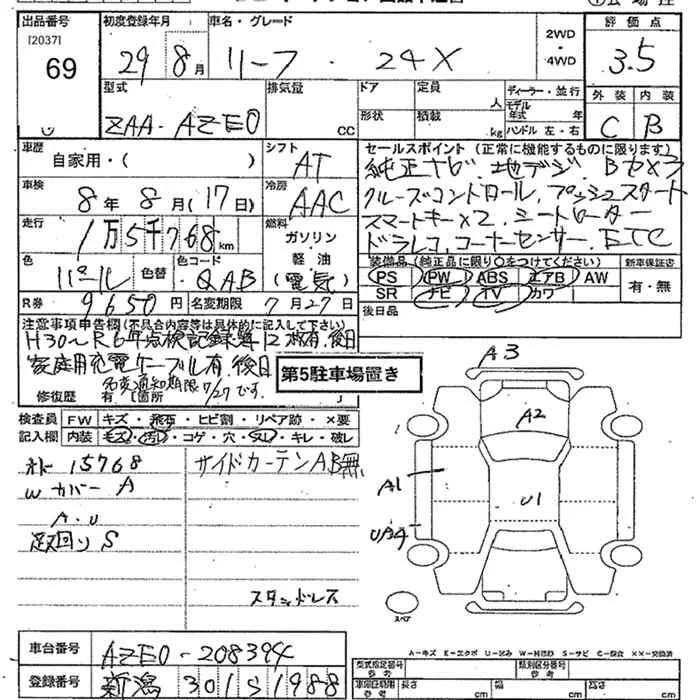 出品番号
[2037]
69
初度登録年月
29 8月
車名・グレード
リーフ・24X
2WD
・
4WD
評価点
3.5
外装 内装
C B
型式
ZAA-AZE0
排気量
CC
ドア
形状
定員
人
積載
kg
ディーラー・並行
モデル年式 年
ハンドル 左・右
車歴
自家用・( )
シフト
AT
車検
8年 8月(17日)
冷房
AAC
走行
1万5千768km
燃料
ガソリン
軽油
(電気)
色
パール
色替
色コード
QAB
R券
9650円
名変期限 7月27日
セールスポイント(正常に機能するものに限ります)
純正ナビ.地デジ.Bカメラ
クルーズコントロール.プッシュスタート
スマートキーx2.シートヒーター
ドラレコ.コーナーセンサー.ETC
装備品(純正品に限り○をつけてください)
PS PW ABS エアB AW
SR ナビ TV カワ
新車保証書
有・無
後日品
注意事項申告欄(不具合内容等は具体的に記入して下さい)
H30~R6年点検記録簿12枚有.後日
家庭用充電ケーブル有.後日
名変通知期限7/27です.
修復歴 有.[箇所 ]
第5駐車場置き
検査員
記入欄
FW キズ・飛石・ヒビ割・リペア跡・×要
内装 モズレ・汚れ・コゲ・穴・スレ・キレ・破レ
オドー 15768
Wカバー A
A.U
足回りS
サイドカーテンAB無
スタッドレス
A3
A2
A1
U1
UA4
スペア
A-キズ E-エクボ U-凹み W-補修跡 S-サビ C-腐食 ××-交換済
車台番号
AZE0-208394
登録番号
新潟 301 S 1988
型式指定番号
類別区分番号
長さ cm
幅 cm
高さ cm